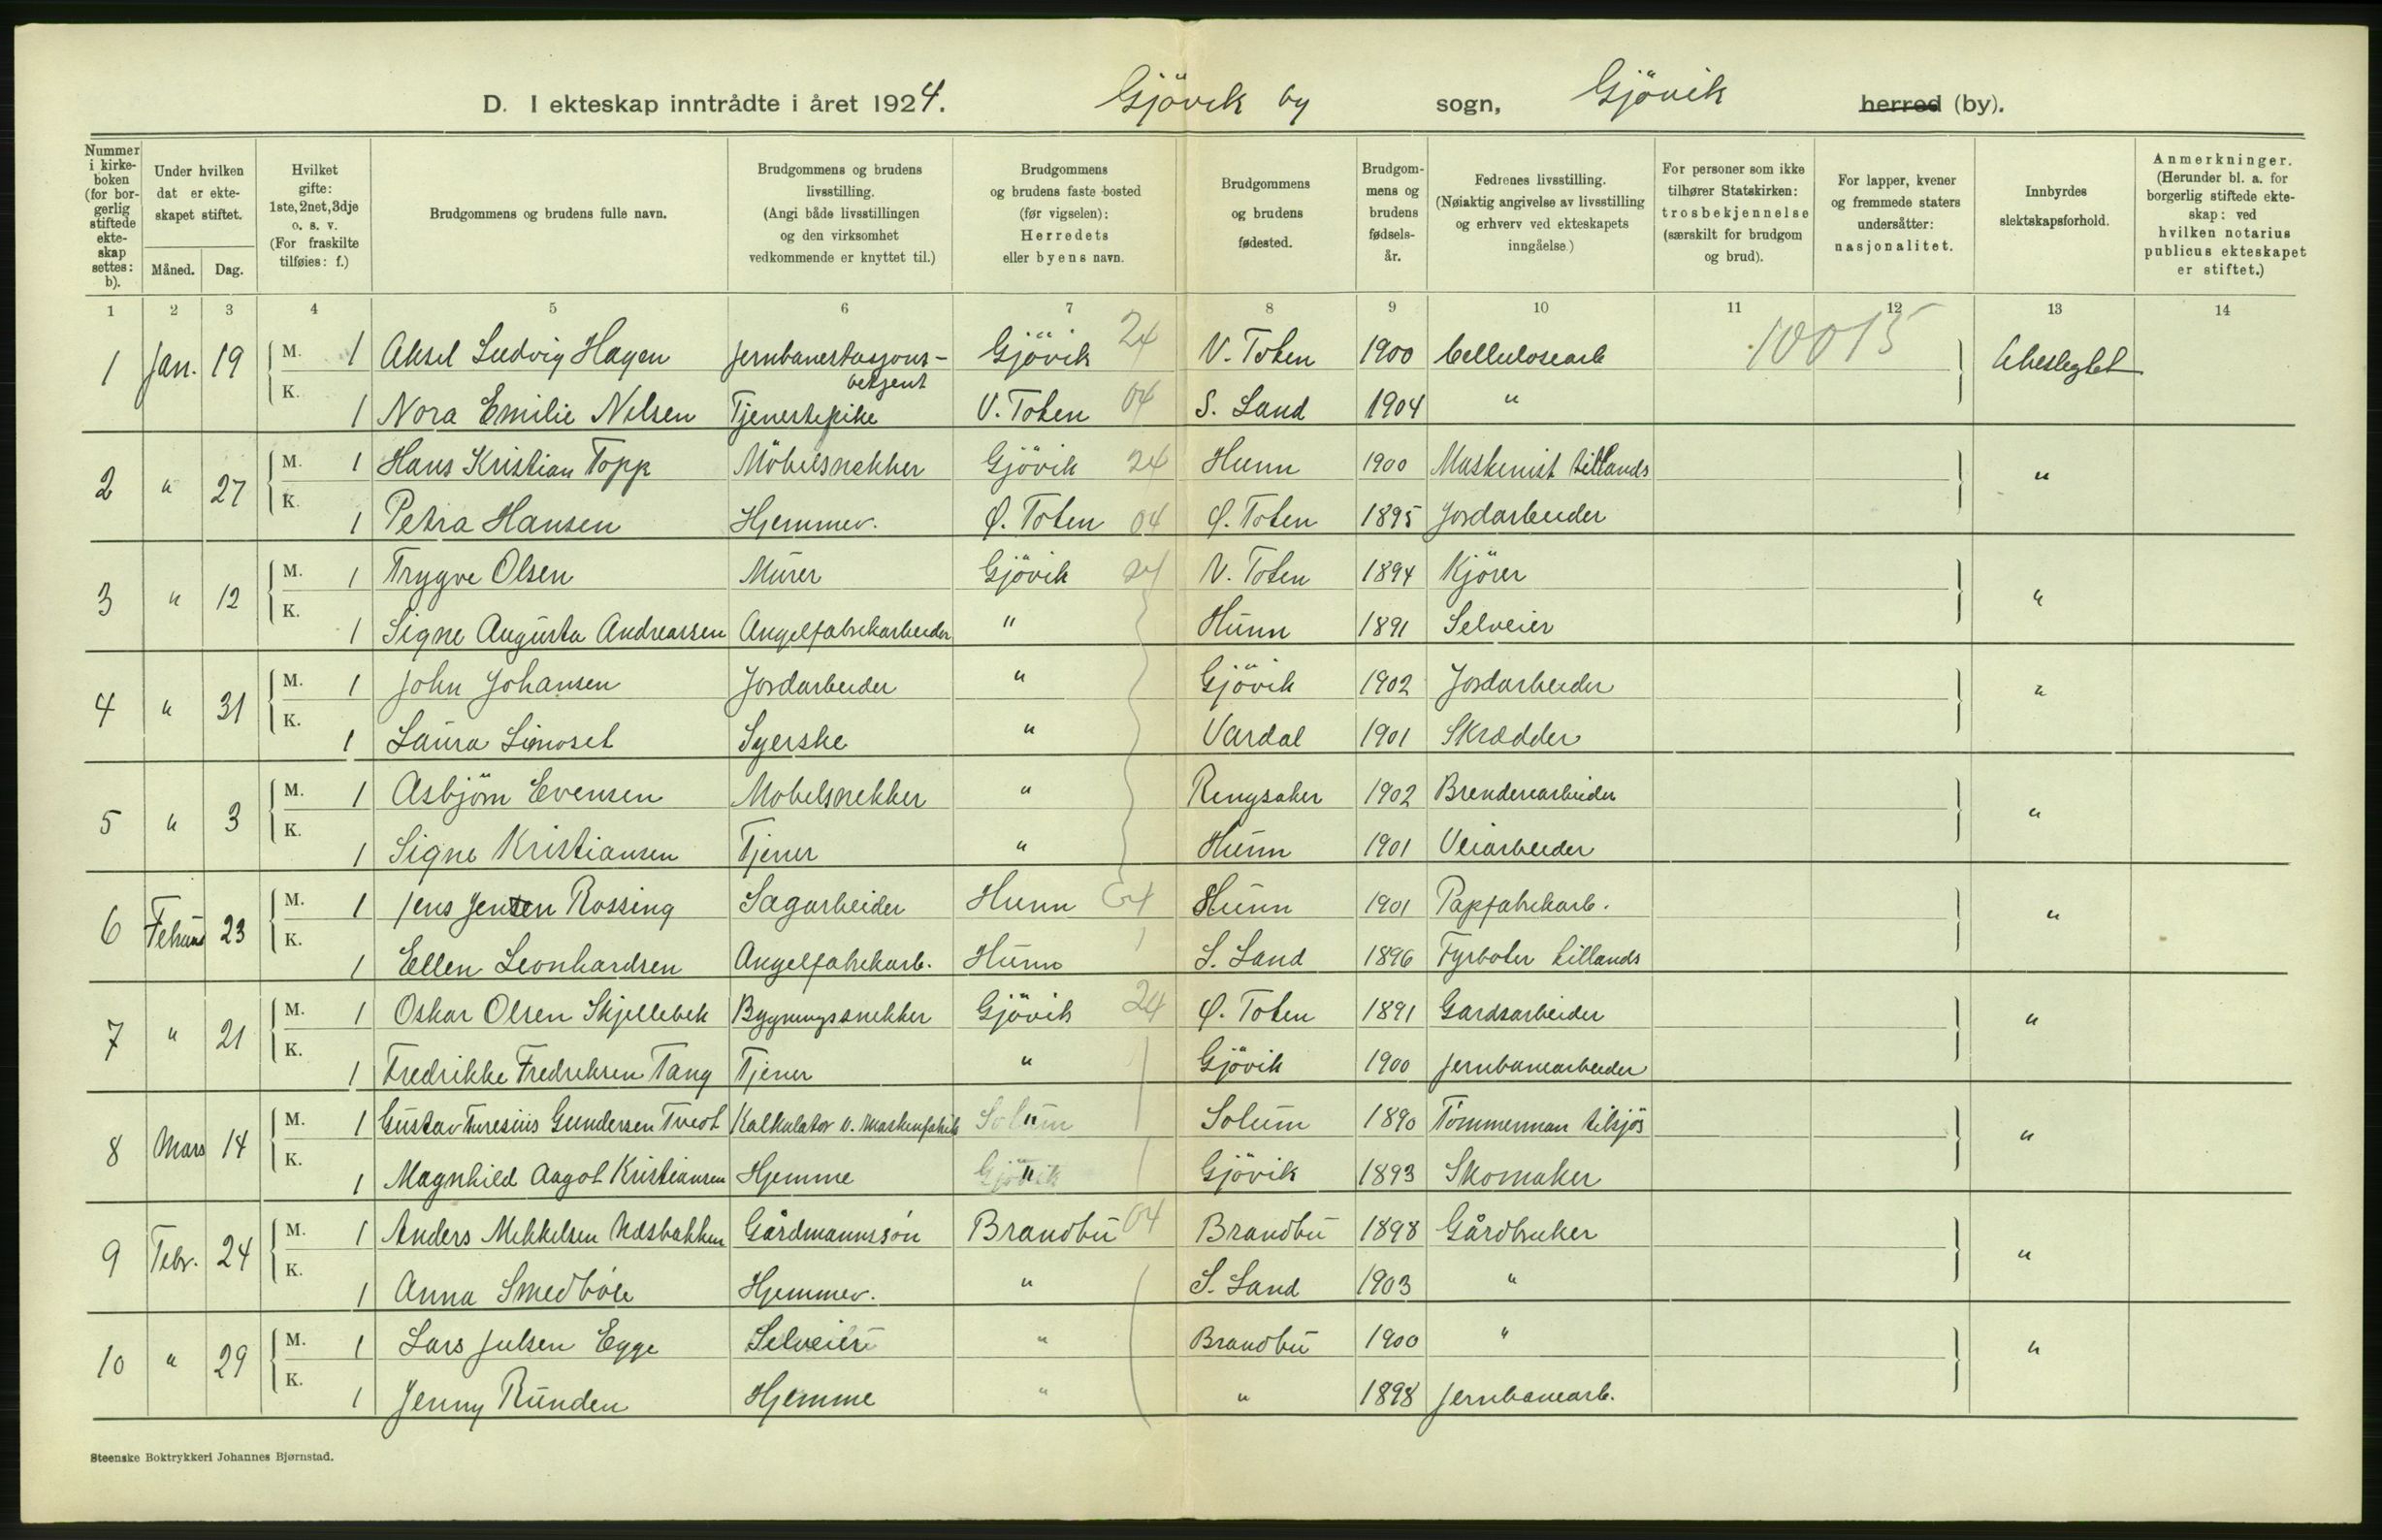 D. I ekteskap inntrådte i året 1924. Gjövik by sogn, Gjövik herred (by).
Nummer i kirkeboken (for borgerlig stiftede ekteskap settes: b).
Under hvilken dat er ekteskapet stiftet.
Måned. Dag.
Hvilket gifte: 1ste, 2net, 3dje o. s. v. (For fraskilte tilføies: f.)
Brudgommens og brudens fulle navn.
Brudgommens og brudens livsstilling. (Angi både livsstillingen og den virksomhet vedkommende er knyttet til.)
Brudgommens og brudens faste bosted (før vigselen): Herredets eller byens navn.
Brudgommens og brudens fødested.
Brudgommens og brudens fødselsår.
Fedrenes livsstilling. (Nøiaktig angivelse av livsstilling og erhverv ved ekteskapets inngåelse.)
For personer som ikke tilhører Statskirken: trosbekjennelse (særskilt for brudgom og brud).
For lapper, kvener og fremmede staters undersåtter: nasjonalitet.
Innbyrdes slektskapsforhold.
Anmerkninger. (Herunder bl. a. for borgerlig stiftede ekteskap: ved hvilken notarius publicus ekteskapet er stiftet.)
1 2 3 4 5 6 7 8 9 10 11 12 13 14
1 Jan. 19 M. 1 Aksel Ludvig Hagen Jernbanestasjons-betjent Gjövik 24 V. Toten 1900 Cellulosearb 10015 Ubeslegtet
K. 1 Nora Emilie Nilsen Tjenestepike V. Toten 04 S. Land 1904 "
2 " 27 M. 1 Hans Kristian Topp Möbelsnekker Gjövik 24 Hunn 1900 Maskinist tillands "
K. 1 Petra Hansen Hjemmev. Ø. Toten 04 Ø. Toten 1895 Jordarbeider
3 " 12 M. 1 Trygve Olsen Murer Gjövik 24 V. Toten 1894 Kjörer "
K. 1 Signe Augusta Andreassen Angelfabrikarbeider " Hunn 1891 Selveier
4 " 31 M. 1 John Johansen Jordarbeider " Gjövik 1902 Jordarbeider "
K. 1 Laura Simoset Syerske " Vardal 1901 Skrædder
5 " 3 M. 1 Asbjörn Evensen Mobelsnekker " Ringsaker 1902 Brenderiarbeider "
K. 1 Signe Kristiansen Tjener " Hunn 1901 Veiarbeider
6 Februar 23 M. 1 Jens Jensen Rossing Sagarbeider Hunn 04 Hunn 1901 Papfabrikarb. "
K. 1 Ellen Leonhardsen Angelfabrikarb. Hunn S. Land 1896 Fyrboter tillands
7 " 21 M. 1 Oskar Olsen Skjellebek Bygningssnekker Gjövik 24 Ø. Toten 1891 Gardsarbeider "
K. 1 Fredrikke Fredriksen Tang Tjener " Gjövik 1900 Jernbanearbeider
8 Mars 14 M. 1 Gustav Gundersen Tvedt Kalkulator v. Maskinfabrik Solum " Solum 1890 Tömmerman tilsjös "
K. 1 Magnhild Aagot Kristiansen Hjemme Gjövik " Gjövik 1893 Skomaker
9 Febr. 24 M. 1 Anders Mikkelsen Udsbakken Gårdmannssön Brandbu 04 Brandbu 1898 Gårdbruker "
K. 1 Anna Smedböle Hjemmev. " S. Land 1903 "
10 " 29 M. 1 Lars Julsen Egge Selveier " Brandbu 1900 " "
K. 1 Jenny Runden Hjemme " " 1898 Jernbanearb.
Steenske Boktrykkeri Johannes Bjørnstad.